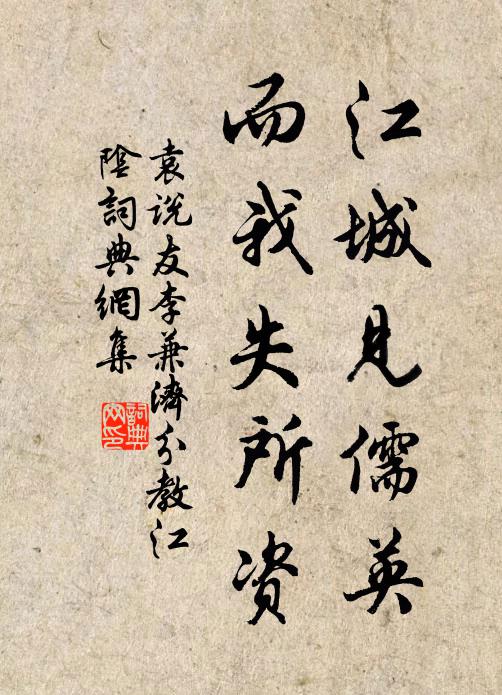 江城見儒英
而我失所資
袁説友李兼濟分教江
陰詞典網集
詞典
网印